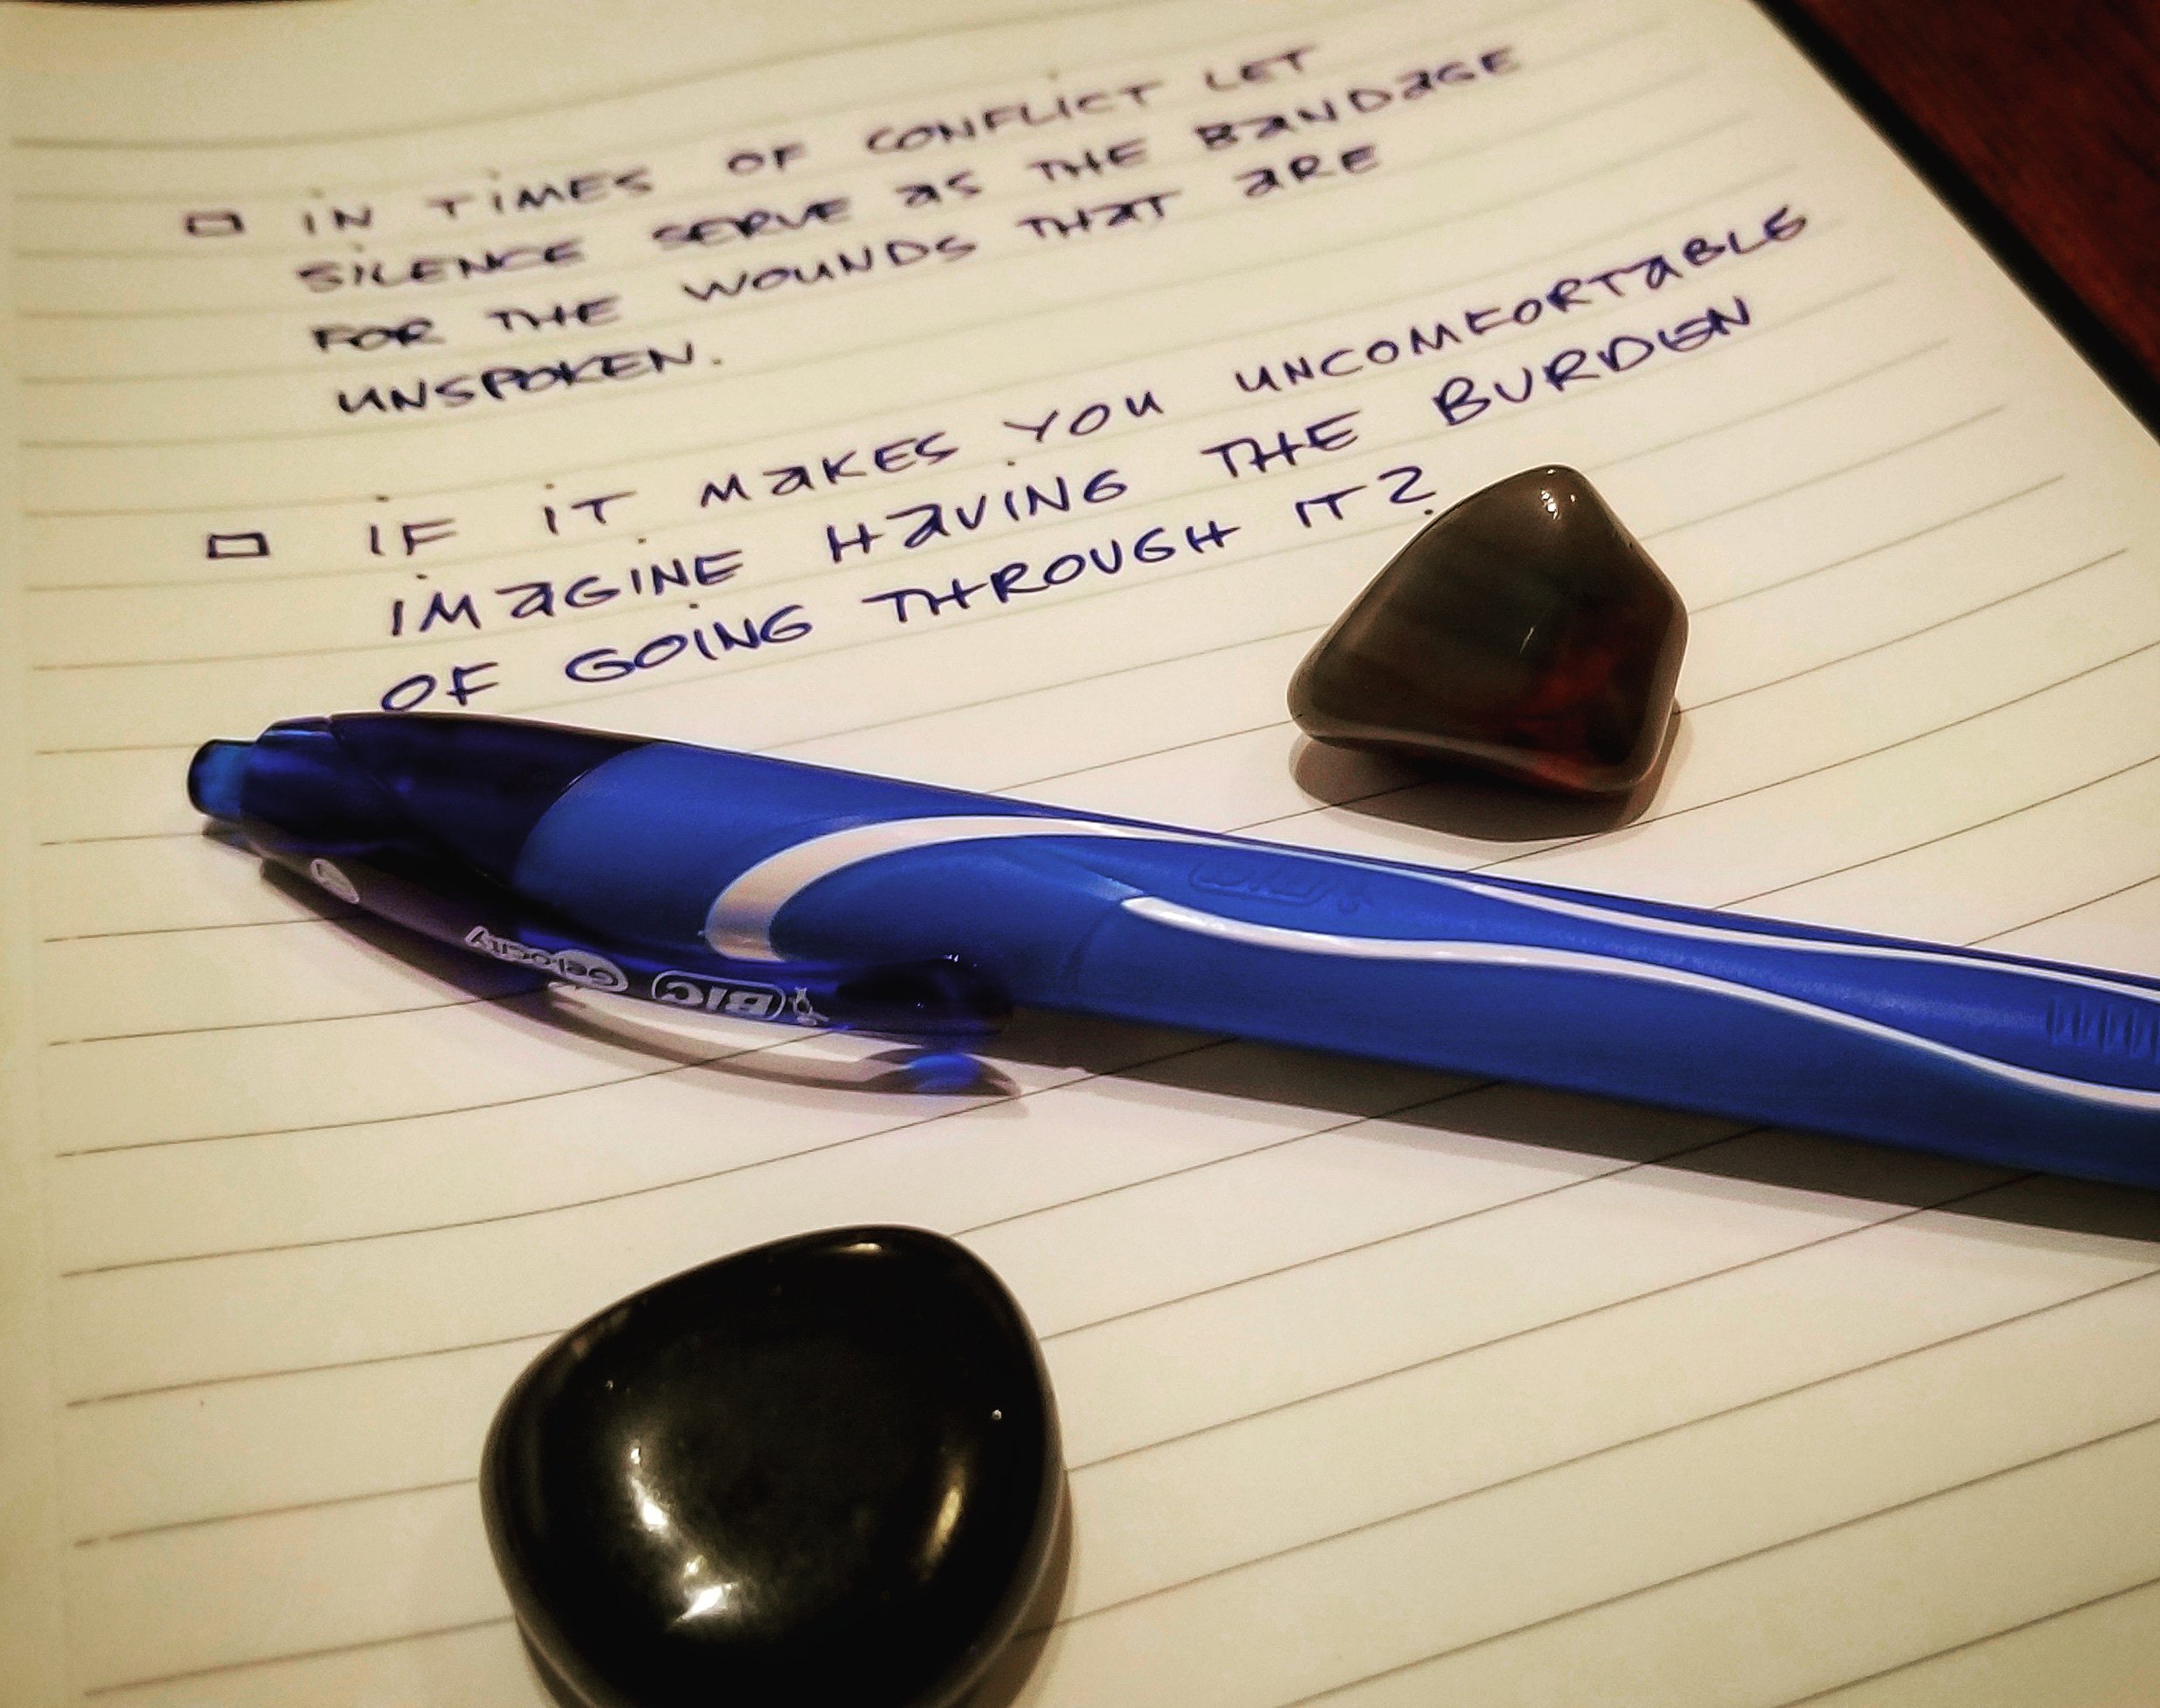 IN TIMES OF CONFLICT LET
SILENCE SERVE AS THE BANDAGE
FOR THE WOUNDS THAT ARE
UNSPOKEN.
IF IT MAKES YOU UNCOMFORTABLE
IMAGINE HAVING THE BURDEN
OF GOING THROUGH IT?
BIC Gel-ocity